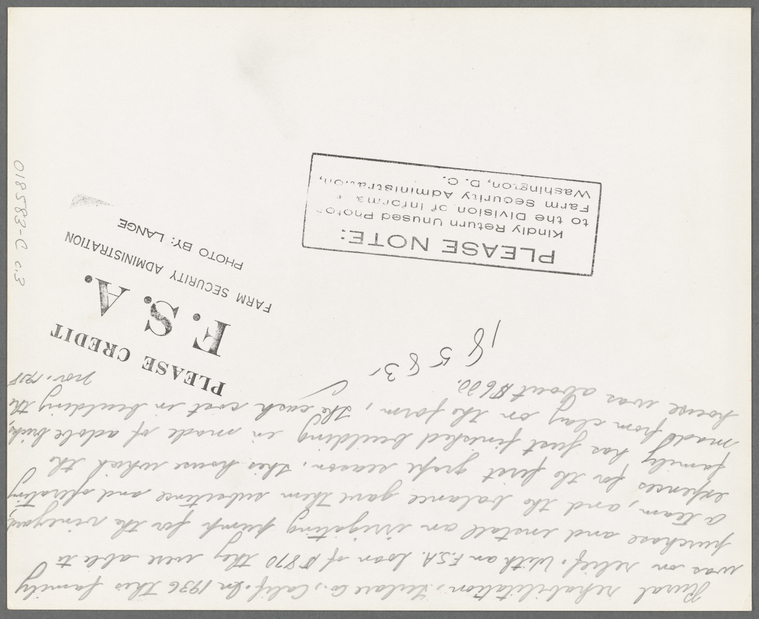 Rural rehabilitation. Tulare Co., Calif. In 1936 this family
was on relief. With an F.S.A. loan of $890 they were able to
purchase and install an irrigating pump for the vineyard,
a team, and the balance gave them subsistence and operating
expenses for the first grape season. This house which the
family has just finished building is made of adobe brick,
made from clay on the farm, the cash cost in building the
house was about $600.
Nov. 1938
18583
C
PLEASE CREDIT
F.S.A.
FARM SECURITY ADMINISTRATION
PHOTO BY: LANGE
PLEASE NOTE:
Kindly Return Unused Photo
to the Division of Informa
Farm Security Administration,
Washington, D. C.
018583-C c.3